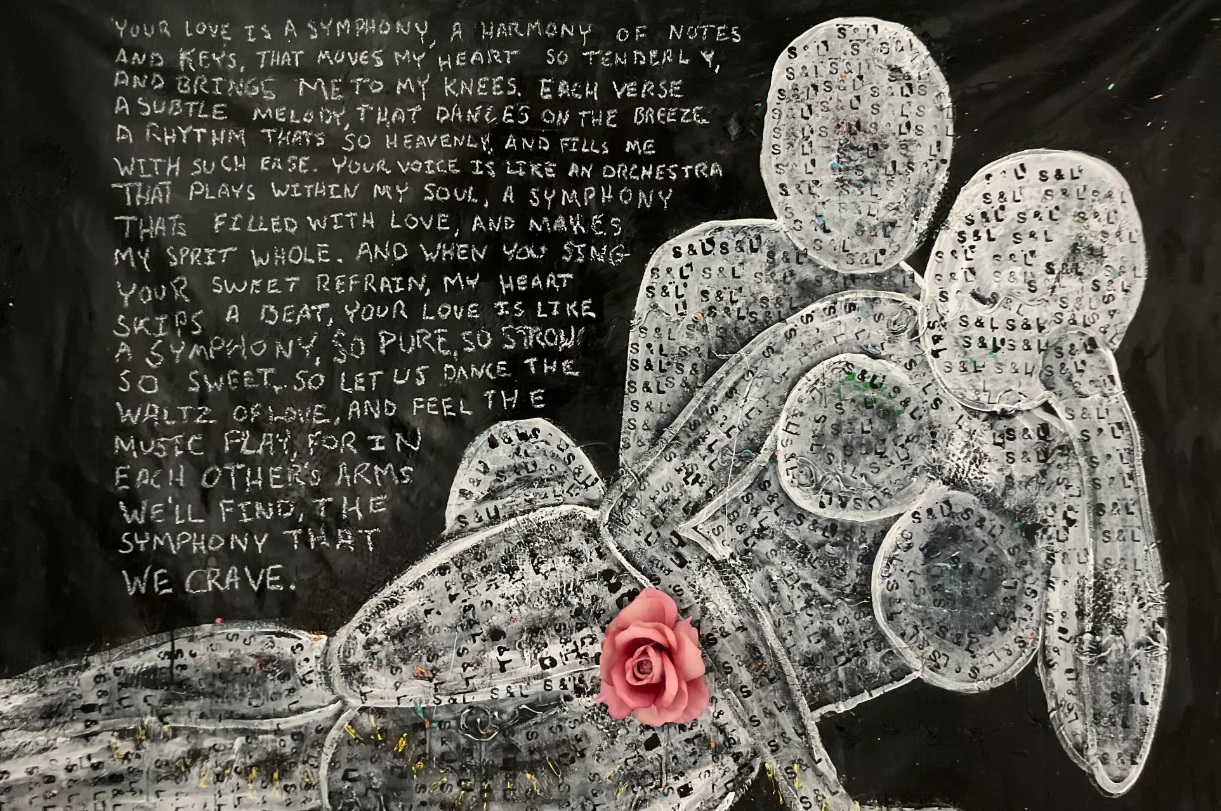 YOUR LOVE IS A SYMPHONY, A HARMONY OF NOTES
AND KEYS, THAT MOVES MY HEART SO TENDERLY,
AND BRINGS ME TO MY KNEES. EACH VERSE
A SUBTLE MELODY, THAT DANCES ON THE BREEZE
A RHYTHM THATS SO HEAVENLY, AND FILLS ME
WITH SUCH EASE. YOUR VOICE IS LIKE AN ORCHESTRA
THAT PLAYS WITHIN MY SOUL, A SYMPHONY
THATS FILLED WITH LOVE, AND MAKES
MY SPRIT WHOLE. AND WHEN YOU SING
YOUR SWEET REFRAIN, MY HEART
SKIPS A BEAT, YOUR LOVE IS LIKE
A SYMPHONY, SO PURE, SO STRONG
SO SWEET, SO LET US DANCE THE
WALTZ OF LOVE, AND FEEL THE
MUSIC PLAY, FOR IN
EACH OTHER'S ARMS
WE'LL FIND, THE
SYMPHONY THAT
WE CRAVE.